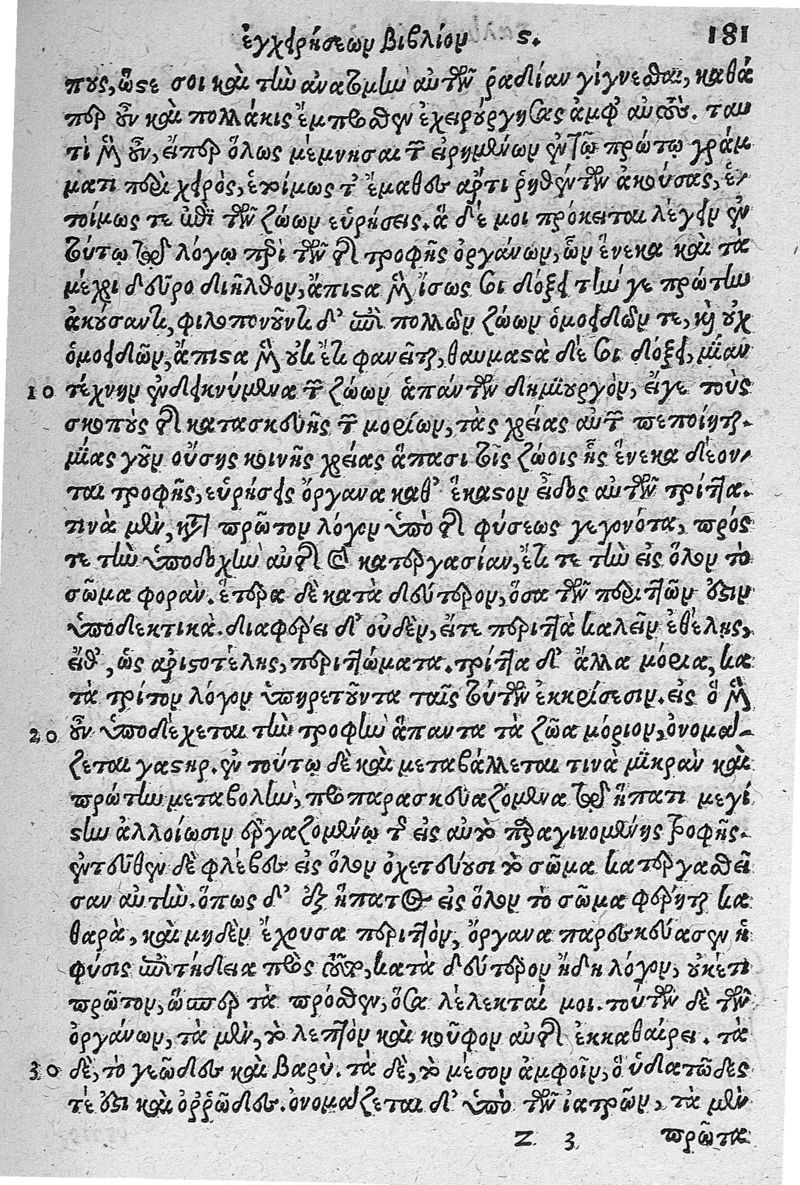 ἐγχειρήσεων βιβλίον ϛ. 181
πους, ὥστε σοι καὶ τὴν ἀνατομὴν αὐτῶν ῥᾳδίαν γίγνεσθαι, καθά
περ οὖν καὶ πολλάκις ἔμπροσθεν ἐχειρούργησας ἀμφ' αὐτοῦ. ταυ
τὶ μὲν οὖν, εἴπερ ὅλως μέμνησαι τῶν εἰρημένων ἐν τῷ πρώτῳ γράμ
ματι περὶ χειρὸς, ἑτοίμως τ' ἔμαθες ἄρτι ῥηθέντων ἀκούσας, ἑ-
τοίμως τε ἐπὶ τῶν ζώων εὑρήσεις. ἃ δέ μοι πρόκειται λέγειν ἐν
τούτῳ τῷ λόγῳ περὶ τῶν τῆς τροφῆς ὀργάνων, ὧν ἕνεκα καὶ τὰ
μέχρι δεῦρο διῆλθον, ἄπιστα μὲν ἴσως σοι δόξει τήν γε πρώτην
ἀκούσαντι, φιλοπονοῦντι δ' ἐπὶ πολλῶν ζώων ὁμοειδῶν τε, καὶ οὐχ
ὁμοειδῶν, ἄπιστα μὲν οὐκ ἔτι φανεῖται, θαυμαστὰ δέ σοι δόξει, μίαν
10 τέχνην ἐνδεικνύμενα τῶν ζώων ἁπάντων δημιουργὸν, εἴγε τοὺς
σκοποὺς τῆς κατασκευῆς τῶν μορίων, τὰς χρείας αὐτῶν πεποίηται.
μίας γοῦν οὔσης κοινῆς χρείας ἅπασι τοῖς ζώοις ἧς ἕνεκα δέον-
ται τροφῆς, εὑρήσεις ὄργανα καθ' ἕκαστον εἶδος αὐτῶν τριττὰ.
τινὰ μὲν, κατὰ πρῶτον λόγον ὑπὸ τῆς φύσεως γεγονότα, πρός
τε τὴν ὑποδοχὴν αὐτῆς καὶ κατεργασίαν, ἔτι τε τὴν εἰς ὅλον τὸ
σῶμα φοράν. ἕτερα δὲ κατὰ δεύτερον, ὅσα τῶν περιττῶν ἐστιν
ὑποδεκτικά. διαφέρει δ' οὐδὲν, εἴτε περιττὰ καλεῖν ἐθέλης,
εἴθ', ὡς ἀριστοτέλης, περιττώματα. τρίττα δ' ἄλλα μόρια, κα
τὰ τρίτον λόγον ὑπηρετοῦντα ταῖς τούτων ἐκκρίσεσιν. εἰς ὃ μὲν
20 οὖν ὑποδέχεται τὴν τροφὴν ἅπαντα τὰ ζῶα μόριον, ὀνομά-
ζεται γαστήρ. ἐν τούτῳ δὲ καὶ μεταβάλλεταί τινὰ μικρὰν καὶ
πρώτην μεταβολὴν, προπαρασκευαζόμενα τῷ ἥπατι μεγί
στην ἀλλοίωσιν ἐργαζομένῳ τῆς εἰς αὐτὸ παραγινομένης τροφῆς.
ἐντεῦθεν δὲ φλέβες εἰς ὅλον ὀχετεύουσι τὸ σῶμα κατεργασθεῖ
σαν αὐτήν. ὅπως δ' ἐξ ἥπατος εἰς ὅλον τὸ σῶμα φέρηται κα
θαρὰ, καὶ μηδὲν ἔχουσα περιττὸν, ὄργανα παρεσκεύασεν ἡ
φύσις ἐπιτήδεια πρὸς τοῦτο, κατὰ δεύτερον ἤδη λόγον, οὐκέτι
πρῶτον, ὥσπερ τὰ πρόσθεν, ὅσα λέλεκταί μοι. τούτων δὲ τῶν
ὀργάνων, τὰ μὲν, τὸ λεπτὸν καὶ κοῦφον αὐτῆς ἐκκαθαίρει. τὰ
30 δὲ, τὸ γεῶδες καὶ βαρύ. τὰ δὲ, τὸ μέσον ἀμφοῖν, ὃ ὑδατῶδές
τέ ἐστι καὶ ὀῤῥῶδες. ὀνομάζεται δ' ὑπὸ τῶν ἰατρῶν, τὰ μὲν
Z 3 πρῶτα